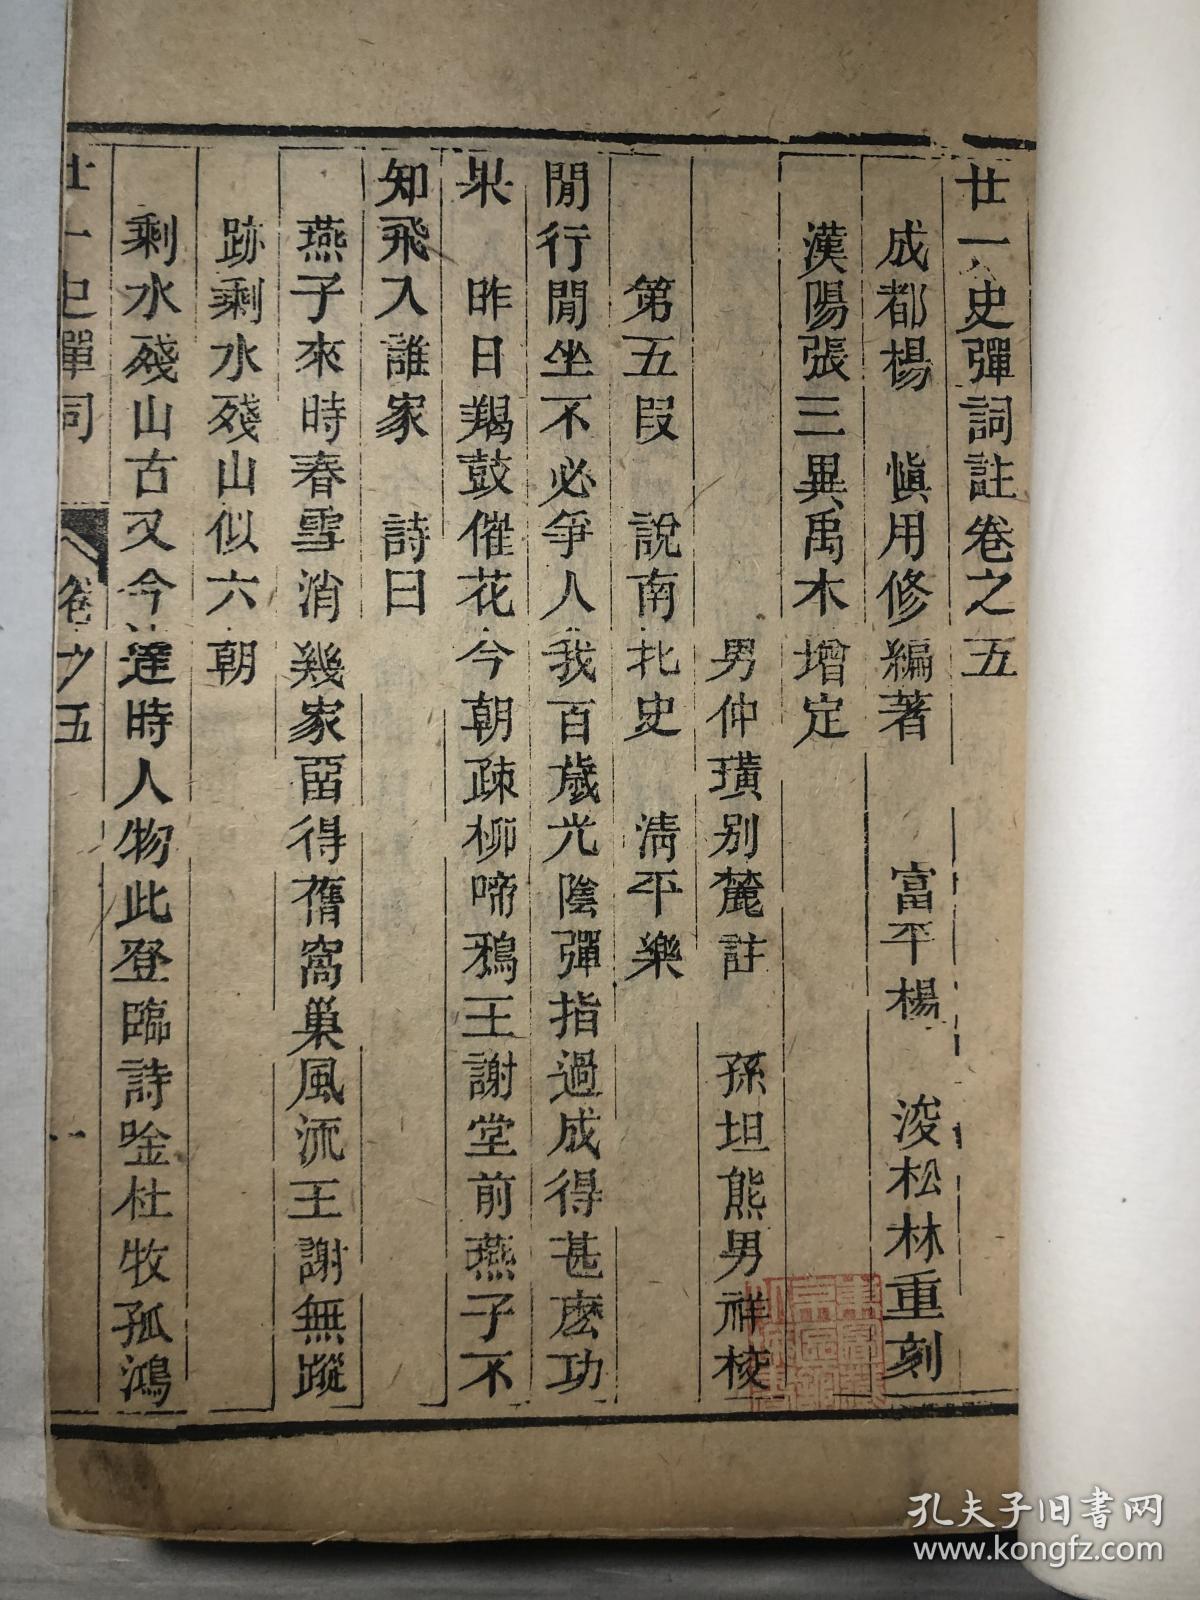 廿一史彈詞註卷之五
成都楊　慎用修編著　富平楊　浚松林重刻
漢陽張三異禹木增定
男仲璜別麓註　孫坦熊男祥校
第五段　說南北史　清平樂
閒行閒坐不必爭人我百歲光陰彈指過成得甚麽功
果　昨日羯鼓催花今朝疎柳啼鴉王謝堂前燕子不
知飛入誰家　詩曰
燕子來時春雪消幾家畱得舊窩巢風流王謝無蹤
跡剩水殘山似六朝
剩水殘山古又今達時人物此登臨詩唫杜牧孤鴻
廿一史彈詞　卷之五　一
孔夫子旧书网
www.kongfz.com